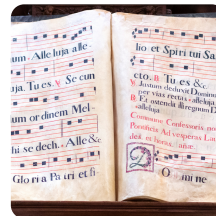 um. Alle luja alle-
ja. Tu es. V. Se cun
um ordinem Mel-
hi se dech. Alle &c
Gloria Patri et fi
lio et Spiri tui Sa
cto. B. Tu es &c.
V. Justum deduxit Domin
per vias rectas. alleluja.
B. Et ostendit illi regnum D
alleluja.
Commune Confessoris no
Pontificis Ad vesperas Lau
des, et horas
O mi ne